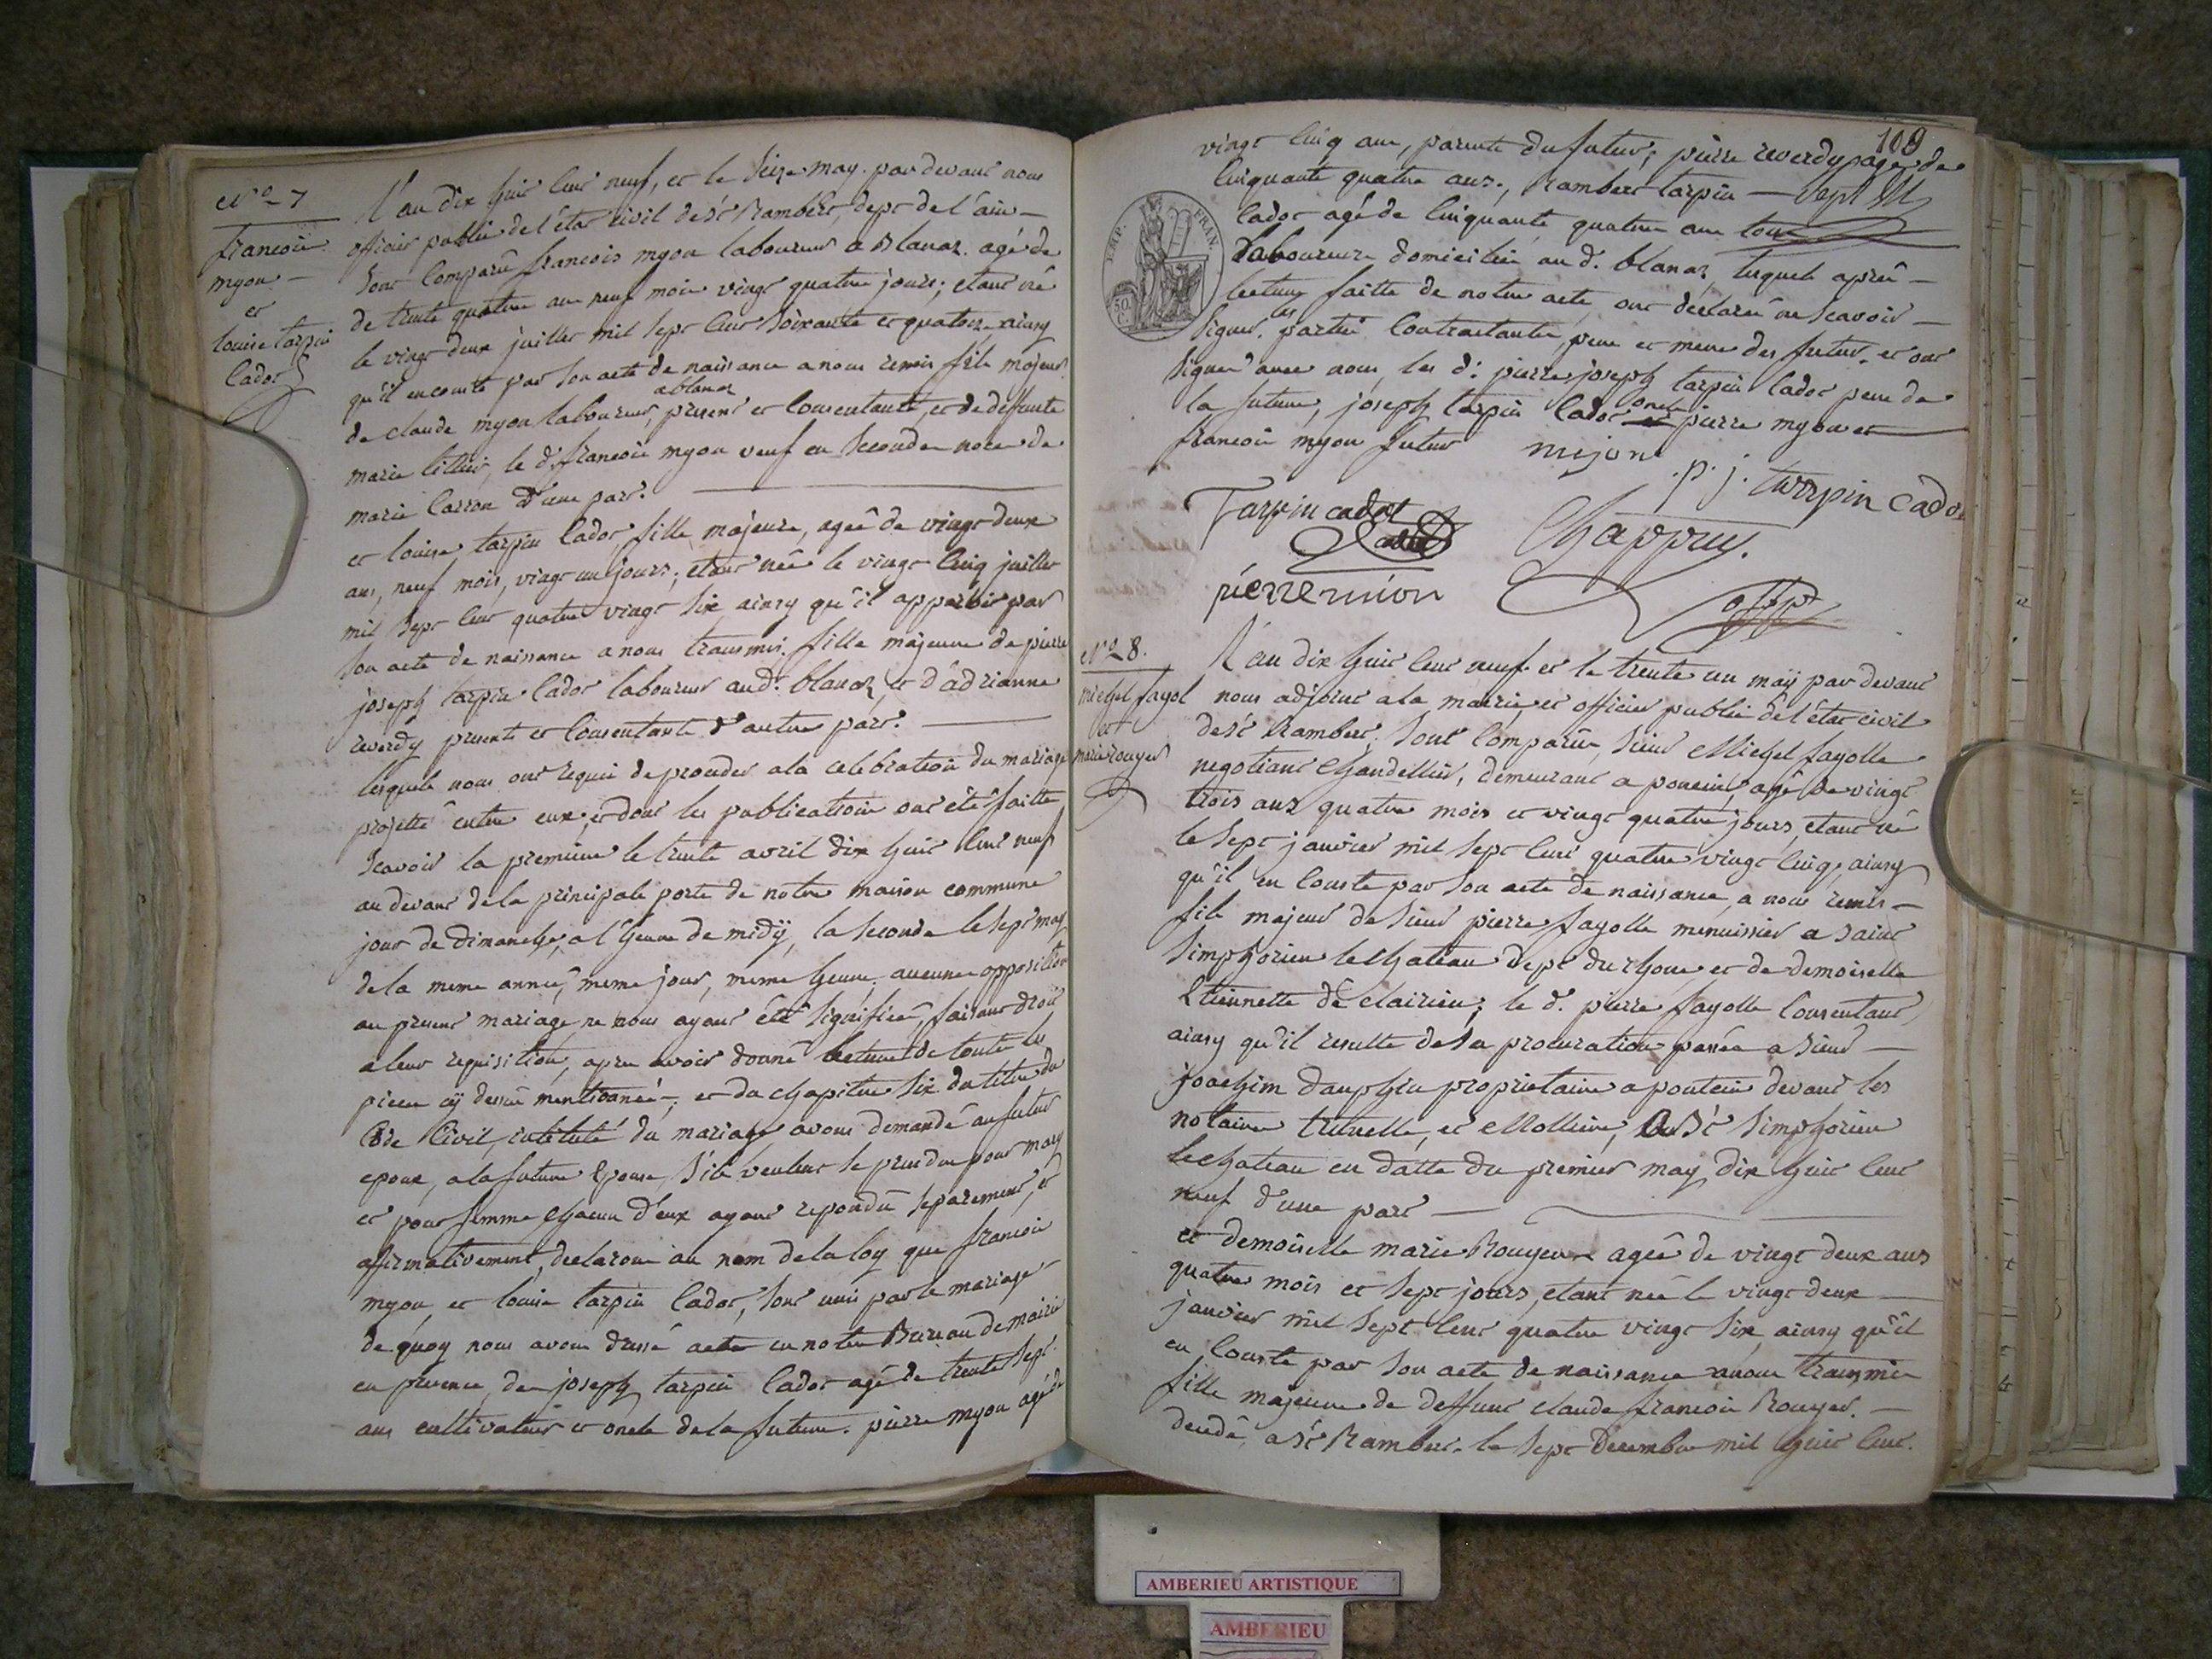 N.o 7
francois
myon
et
Louise tarpin
Cador
L'an dix huit cent neuf, et le seize may. par devant nous
officier public de l'état civil de St Rambert, dept de l'ain
sont comparu francois myon laboureur a Blanaz. agé de
de trente quatre ans neuf mois vingt quatre jours; etant né
le vingt deux juillet mil sept cent soixante et quatorze ainsy
qu'il enconste par son acte de naissance a nous remis fils majeur
de claude myon laboureur, a blanaz present et Consentant, et de deffunte
marie, le d. francois myon veuf en secondes noces de
marie Carron d'une part.
et louise tarpin Cador, fille majeure, ageê de vingt deux
ans, neuf mois, vingt un jours; étant née le vingt cinq juillet
mil sept cent quatre vingt six ainsy qu'il apparoir par
son acte de naissance a nous transmis. fille majeure de pierre
joseph tarpin Cador laboureur aud. blanaz, et d'adrianne
reverdy presents et Consentants d'autre part.
lesquels nous ont requis de proceder a la celebration du mariage
projetté entre eux, et dont les publications ont été faitte
scavoir la premiere le trente avril dix huit cent neuf
au devant de la principale porte de notre maison commune
jour de dimanche, a l'heure de midÿ, la seconde le sept may
de la meme anneé, meme jour, meme heure, aucunne opposition
au present mariage ne nous ayant été signifieé, faisant droit
a leur requisition, apres avoir donné lecture de toute les
pieces cÿ dessus mentionneé, et du chapitre six du titre du
Code Civil, intitulé du mariage avons demandé au futur
epoux, a la future Epouse s'ils veulent se prendre pour mary
et pour femme chacun d'eux ayant repondu separement, et
affirmativement, declarons au nom de la loy que francois
myon, et louise tarpin Cador, sont unis par le mariage
de quoy nous avons dressé acte en notre Bureau de mairie
en presence de joseph tarpin Cador agé de trente sept
ans cultivateur et oncle de la future. pierre myon agé de
109
vingt cinq ans, parents du futur, pierre reverdy agé de
Cinquante quatre ans., rambert tarpin
Cador agé de Cinquante quatre ans tous
Laboureurs domiciliés au d. blanaz, lesquels aprés
lecture faitte de notre acte ont déclaré ne scavoir
signer. les parties Contractantes, pere et mere des futur. et ont
signer avec nous, les d. pierre joseph tarpin Cador pere de
la future, joseph tarpin Cador oncle et pierre myon et
francois myon futur
EMP. FRAN.
50
C.
mijon
.p. j. tarpin Cador
Tarpin cador
Chappuy.
pierre mion
N.o 8.
michel fayol
et
marie rouyer
L'an dix huit cent neuf et le trente un maÿ par devant
nous adjoint a la mairie, et officier public de l'état civil
de St Rambert. Sont Comparu, sieur Michel fayolle
negotiant Chandellier, demeurant a poncin, agé de vingt
trois ans quatre mois et vingt quatre jours, etant né
le sept janvier mil sept cent quatre vingt cinq, ainsy
qu'il en Conste par son acte de naissance, a nous remis
fils majeur de sieur pierre fayolle menuissier a saint
Simphorien le chateau dept du rhone et de demoiselle
Etiennette de clairieu; le d. pierre fayolle Consentant,
ainsy qu'il resulte de sa procuration passée a sieur
joachim dauphin proprietaire a poncin devant les
notaires, et Molliere, de St Simphorien
le chateau en datte du premier may dix huit cent
neuf d'une part
et demoiselle marie Rouyer ageé de vingt deux ans
quatre mois et sept jours, etant neé le vingt deux
janvier mil sept cent quatre vingt six ainsy qu'il
en Conste par son acte de naissance a nous transmis
fille majeure de deffunt claude francois Rouyer.
decedé a St Rambert le sept Decembre mil huit cent.
AMBERIEU ARTISTIQUE
AMBERIEU